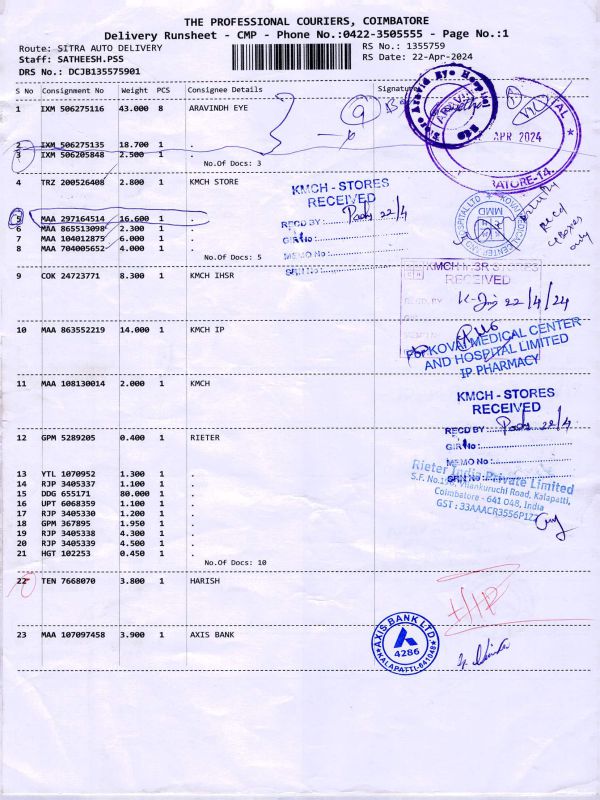 THE PROFESSIONAL COURIERS, COIMBATORE
Delivery Runsheet - CMP - Phone No.:0422-3505555 - Page No.:1
Route: SITRA AUTO DELIVERY
RS No.: 1355759
Staff: SATHEESH.PSS
RS Date: 22-Apr-2024
DRS No.: DCJB135575901
S No Consignment No Weight PCS Consignee Details Signature
1 IXM 506275116 43.000 8 ARAVINDH EYE
APR 2024
2 IXM 506275135 18.700 1 .
3 IXM 506205848 2.500 1 .
No.Of Docs: 3
4 TRZ 200526408 2.800 1 KMCH STORE
KMCH - STORES
RECEIVED
RECD BY : 22/4
GIR No :
MEMO No :
GRN No :
5 MAA 297164514 16.600 1 .
6 MAA 865513098 2.300 1 .
7 MAA 104012875 6.000 1 .
8 MAA 704005652 4.000 1 .
No.Of Docs: 5
9 COK 24723771 8.300 1 KMCH IHSR
RECEIVED
RECD. BY 22/4/24
10 MAA 863552219 14.000 1 KMCH IP
KOVAI MEDICAL CENTER
AND HOSPITAL LIMITED
IP PHARMACY
11 MAA 108130014 2.000 1 KMCH
KMCH - STORES
RECEIVED
RECD BY : 22/4
GIR No :
MEMO No :
GRN No :
12 GPM 5289205 0.400 1 RIETER
Rieter India Private Limited
Vilankuruchi Road, Kalapatti,
Coimbatore - 641 048, India
GST : 33AAACR3556P1Z
13 YTL 1070952 1.300 1 .
14 RJP 3405337 1.100 1 .
15 DDG 655171 80.000 1 .
16 UPT 6068359 1.100 1 .
17 RJP 3405330 1.200 1 .
18 GPM 367895 1.950 1 .
19 RJP 3405338 4.300 1 .
20 RJP 3405339 4.500 1 .
21 HGT 102253 0.450 1 .
No.Of Docs: 10
22 TEN 7668070 3.800 1 HARISH
23 MAA 107097458 3.900 1 AXIS BANK
AXIS BANK LTD.
4286
KALAPATTI-641048